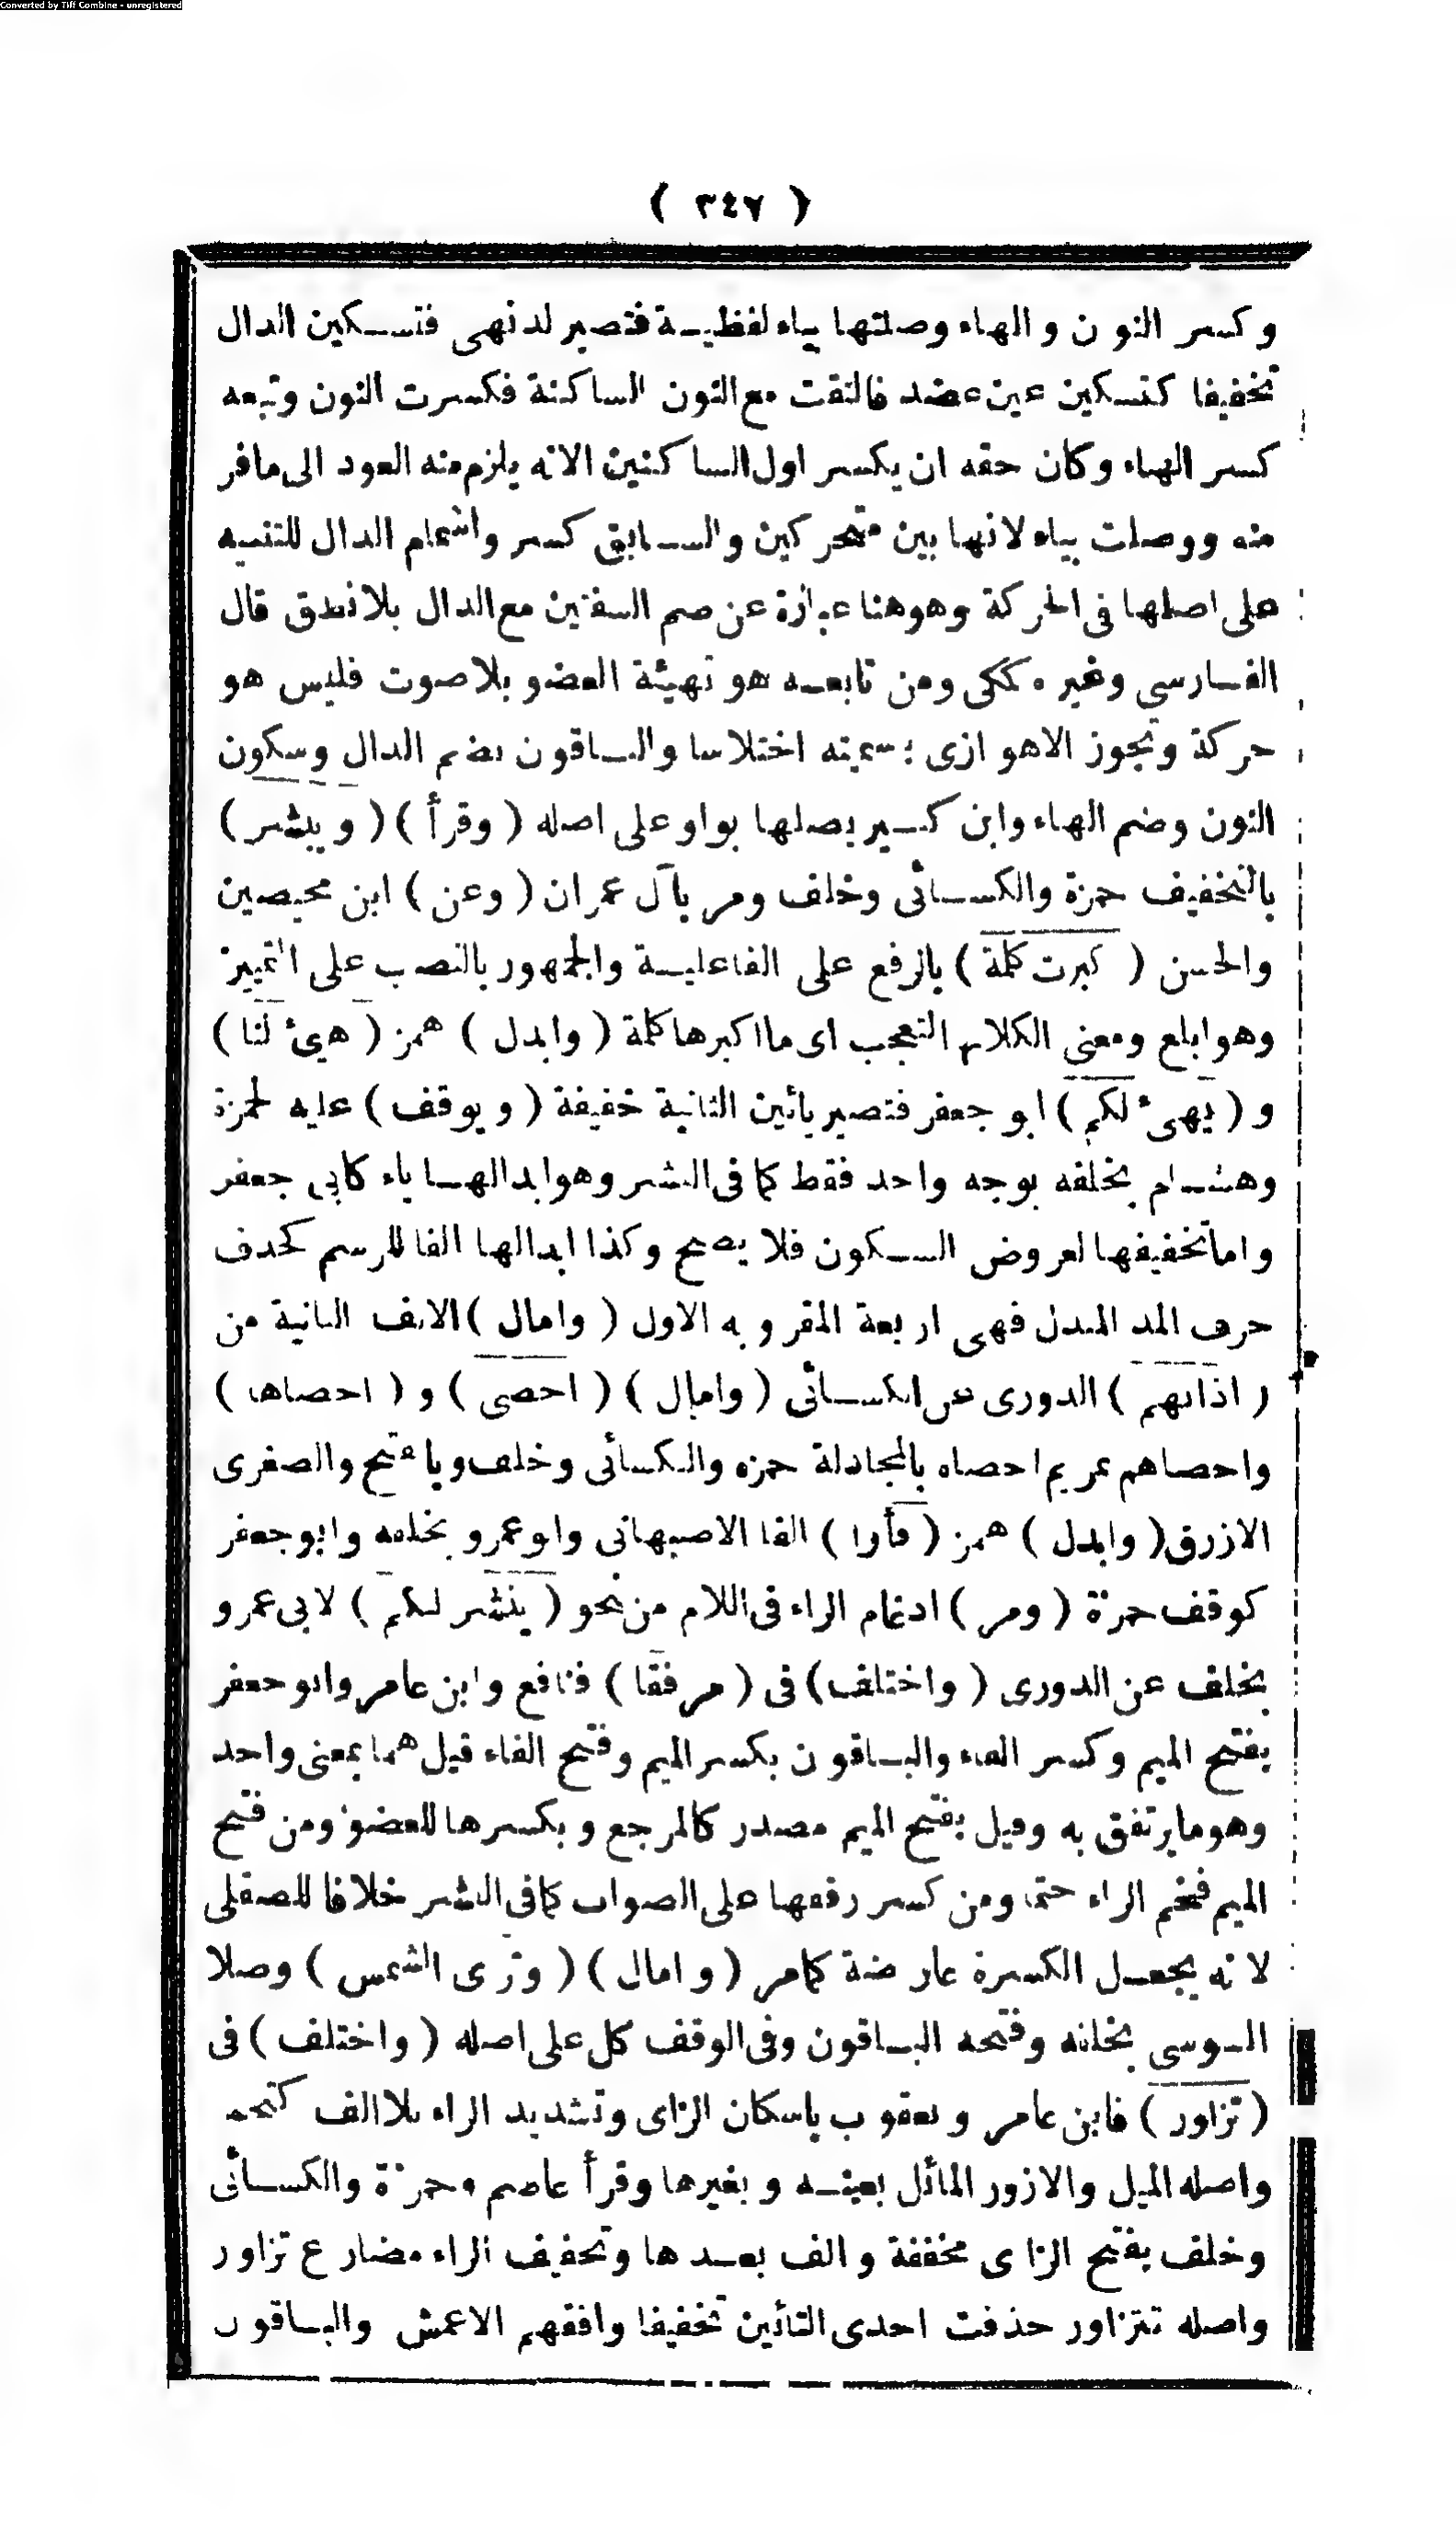 Converted by Tiff Combine - unregistered
( ٣٤٧ )
وكسر النون والهاء وصلتها بياء لفظية فتصير لدنهى فتسكين الدال
تخفيفا كتسكين عين عضد فالتقت مع النون الساكنة فكسرت النون وتبعه
كسر الهاء وكان حقه ان يكسر اول الساكنين الا انه يلزم منه العود الى ما فر
منه ووصلت بياء لانها بين متحركين والسابق كسر واشمام الدال للتنبيه
على اصلها فى الحركة وهو هنا عبارة عن ضم الشفتين مع الدال بلا نطق قال
الفارسي وغيره كمكى ومن تابعه هو تهيئة العضو بلا صوت فليس هو
حركة وتجوز الاهوازى بتسميته اختلاسا والباقون بضم الدال وسكون
النون وضم الهاء وابن كثير يصلها بواو على اصله ( وقرأ ) ( ويبشر )
بالتخفيف حمزة والكسائى وخلف ومر بآل عمران ( وعن ) ابن محيصين
والحسن ( كبرت كلمة ) بالرفع على الفاعلية والجمهور بالنصب على التمييز
وهو ابلغ ومعنى الكلام التعجب اى ما اكبرها كلمة ( وابدل ) همز ( هيئ لنا )
و ( يهيئ لكم ) ابو جعفر فتصير يائين الثانية خفيفة ( ويوقف ) عليه لحمزة
وهشام بخلفه بوجه واحد فقط كما فى النشر وهو ابدالها ياء كابى جعفر
واما تخفيفها لعروض السكون فلا يصح وكذا ابدالها الفا للرسم كحذف
حرف المد المبدل فهى اربعة المقروبه الاول ( وامال ) الالف الثانية من
( اذانهم ) الدورى عن الكسائى ( وامال ) ( احصى ) و ( احصاها )
واحصاهم بمريم احصاه بالمجادلة حمزه والكسائى وخلف وبالفتح والصغرى
الازرق ( وابدل ) همز ( فأوا ) الفا الاصبهانى وابو عمرو بخلفه وابو جعفر
كوقف حمزة ( ومر ) ادغام الراء فى اللام من نحو ( ينشر لكم ) لابى عمرو
بخلف عن الدورى ( واختلف ) فى ( مرفقا ) فنافع وابن عامر وابو جعفر
بفتح الميم وكسر الفاء والباقون بكسر الميم وفتح الفاء قيل هما بمعنى واحد
وهو ما يرتفق به وقيل بفتح الميم مصدر كالمرجع وبكسرها للعضو ومن فتح
الميم فخم الراء حتما ومن كسر رققها على الصواب كما فى النشر خلافا للصقلى
لانه يجعل الكسرة عارضة كمامر ( وامال ) ( وترى الشمس ) وصلا
السوسى بخلفه وفتحه الباقون وفى الوقف كل على اصله ( واختلف ) فى
( تزاور ) فابن عامر ويعقوب باسكان الزاى وتشديد الراء بلا الف كتحمر
واصله الميل والازور المائل بعينه وبغيرها وقرأ عاصم وحمزة والكسائى
وخلف بفتح الزاى مخففة والف بعدها وتخفيف الراء مضارع تزاور
واصله تتزاور حذفت احدى التائين تخفيفا وافقهم الاعمش والباقون